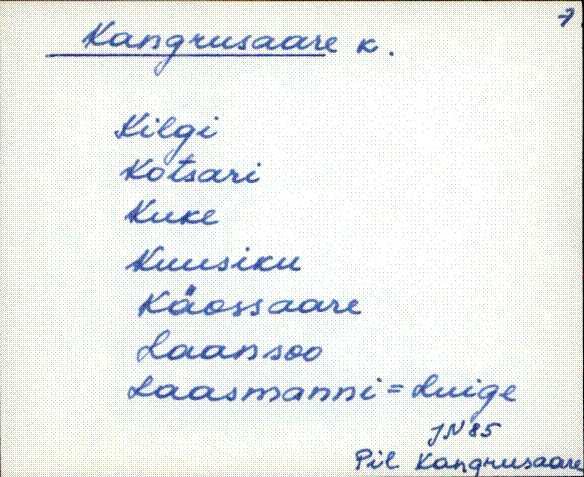 7
Kangrusaare k.
Kilgi
Kotsari
Kuke
Kuusiku
Käossaare
Laansoo
Laasmanni = Luige
JN 85
Pil Kangrusaare